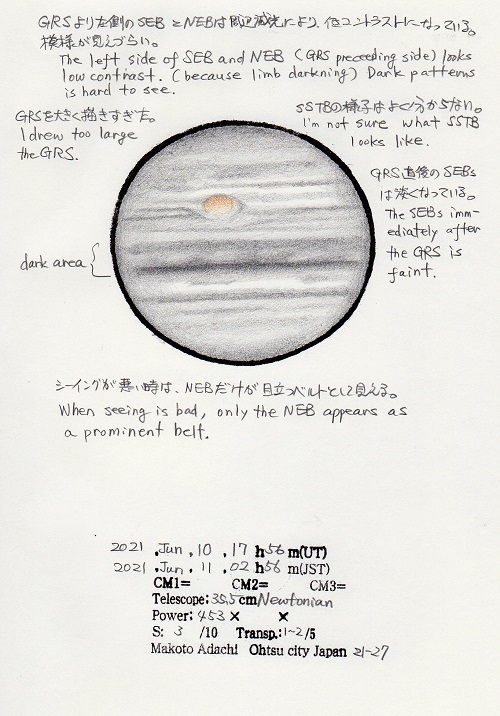 GRSより左側のSEBとNEBは周辺減光により、低コントラストになっている。
模様が見えづらい。
The left side of SEB and NEB (GRS preceeding side) looks
low contrast. (because limb darkning) Dark patterns
is hard to see.
GRSを大きく描きすぎた。
I drew too large
the GRS.
SSTBの様子はよく分からない。
I'm not sure what SSTB
looks like.
GRS直後のSEBs
は淡くなっている。
The SEBs imm-
ediately after
the GRS is
faint.
dark area
シーイングが悪い時は、NEBだけが目立つベルトとして見える。
When seeing is bad, only the NEB appears as
a prominent belt.
2021 .Jun .10 .17 h56 m(UT)
2021 .Jun. 11 .02 h56 m(JST)
CM1= CM2= CM3=
Telescope:35.5cm Newtonian
Power:453× ×
S: 3 /10 Transp.:1-2/5
Makoto Adachi Ohtsu city Japan 21-27